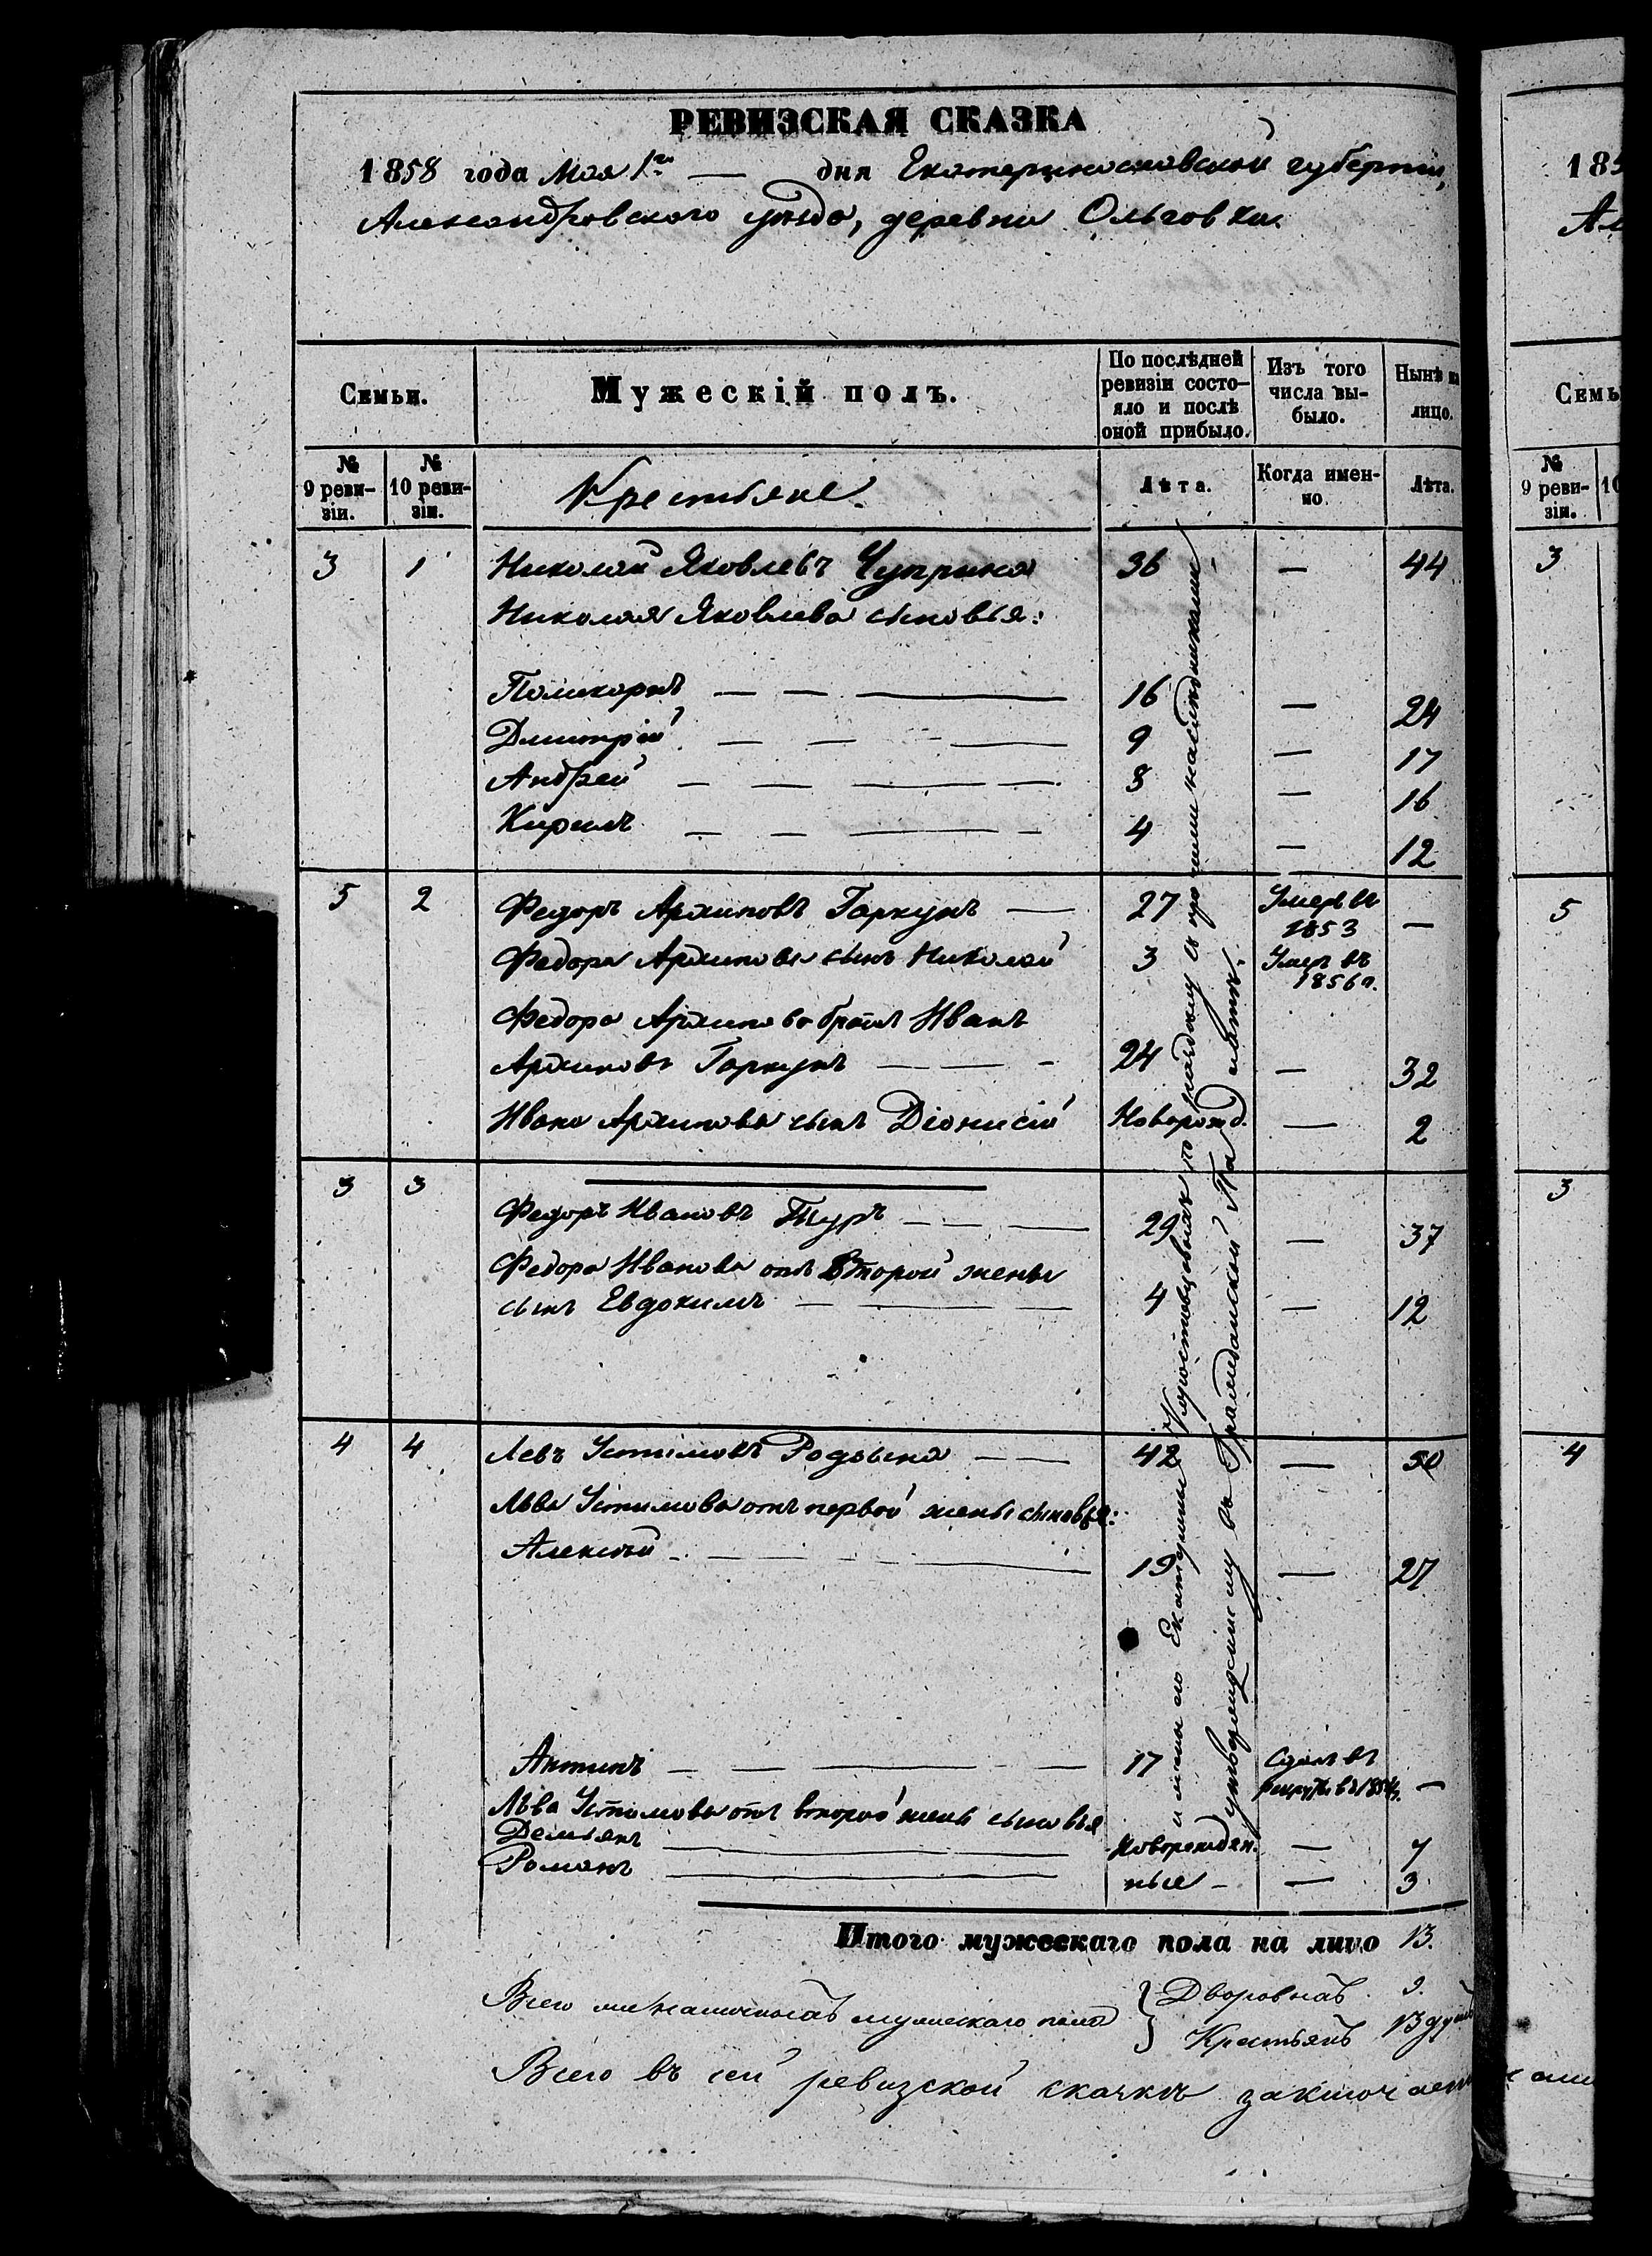 РЕВИЗСКАЯ СКАЗКА
1858 года Мая 1го — дня Екатеринославской губернии,
Александровского уезда, деревни Ольговки.
Семьи.
Мужескій полъ.
По послѣдней ревизіи состо-яло и послѣ оной прибыло.
Изъ того числа вы-было.
Нынѣ на лицо.
№ 9 реви-зіи.
№ 10 реви-зіи.
Крестьяне.
Лѣта.
Когда имен-но.
Лѣта.
3 1 Николай Яковлевъ Чуприна 36 — 44
Николая Яковлева сыновья:
Поликарпъ — — — 16 — 24
Дмитрій — — — 9 — 17
Андрей — — — 8 — 16
Кирилъ — — — 4 — 12
5 2 Федоръ Архиповъ Горкунъ — 27 Умеръ въ 1853 —
Федора Архипова сынъ Николай 3 Умеръ въ 1856 г.
Федора Архипова братъ Иванъ
Архиповъ Горкунъ — — - 24 — 32
Ивана Архипова сынъ Діонисій Новорожд. — 2
3 3 Федоръ Ивановъ Туръ — — 29 — 37
Федора Иванова отъ второй жены
сынъ Евдокимъ — — — 4 — 12
4 4 Левъ Устимовъ Родына — — 42 — 50
Льва Устимова отъ первой жены сыновья:
Алексѣй — — — 19 — 27
Антипъ — — — 17 Сданъ въ рекруты въ 1854г. —
Льва Устимова отъ второй жены сыновья
Демьянъ — Новорожден- — 7
Романъ — ные — — 3
и жены его Екатерины Коростовцевыхъ по каждому съ прочими наслѣдниками
въ Гражданской Па
Итого мужескаго пола на лицо 13.
Всего мужескаго пола } Дворовыхъ.
Крестьянъ 13 душъ
Всего въ сей ревизской сказкѣ заключает
185
Ал
Семь
№ 9 реви-зіи.
10
3
5
3
4